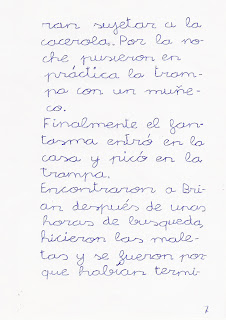 ran sujetar a la
cacerola. Por la no-
che pusieron en
práctica la tram-
pa con un muñe-
co.
Finalmente el fan-
tasma entró en la
casa y picó en la
trampa.
Encontraron a Bri-
an después de unas
horas de busqueda,
hicieron las male-
tas y se fueron por-
que habían termi-
7